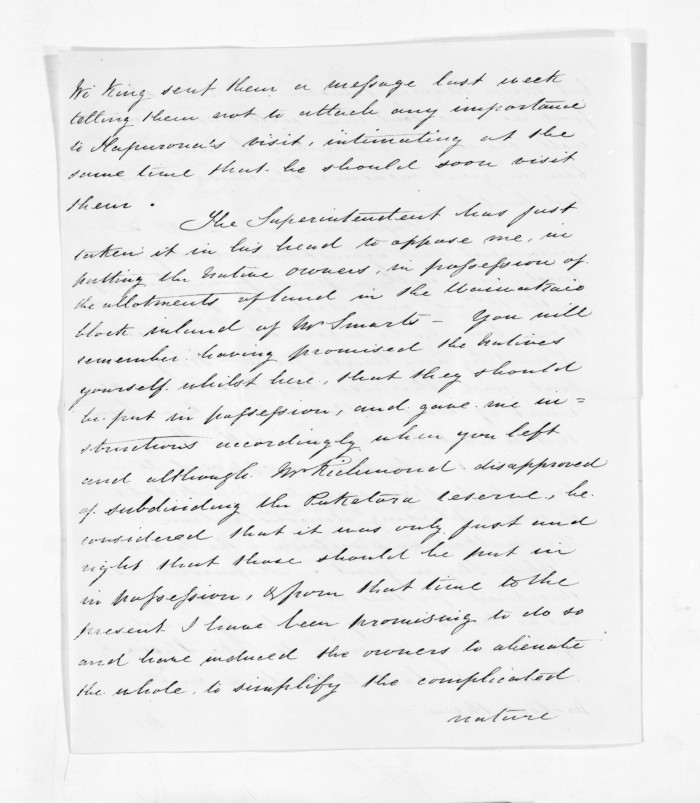 Wi King sent them a message last week
telling them not to attach any importance
to Hapurona's visit, intimating at the
same time that he should soon visit
them.
The Superintendent has just
taken it in his head to oppose me, in
putting the native owners, in possession of
the allotments of land in the Waiwakaio
block inland of Mr Smarts - You will
remember having promised the natives
yourself whilst here, that they should
be put in possession, and gave me in=
structions accordingly when you left
and although Mr Richmond disapproved
of subdividing the Puketotara reserve, he
considered that it was only just and
right that those should be put in
in possession, & from that time to the
present I have been promising to do so
and have induced the owners to alienate
the whole, to simplify the complicated
nature